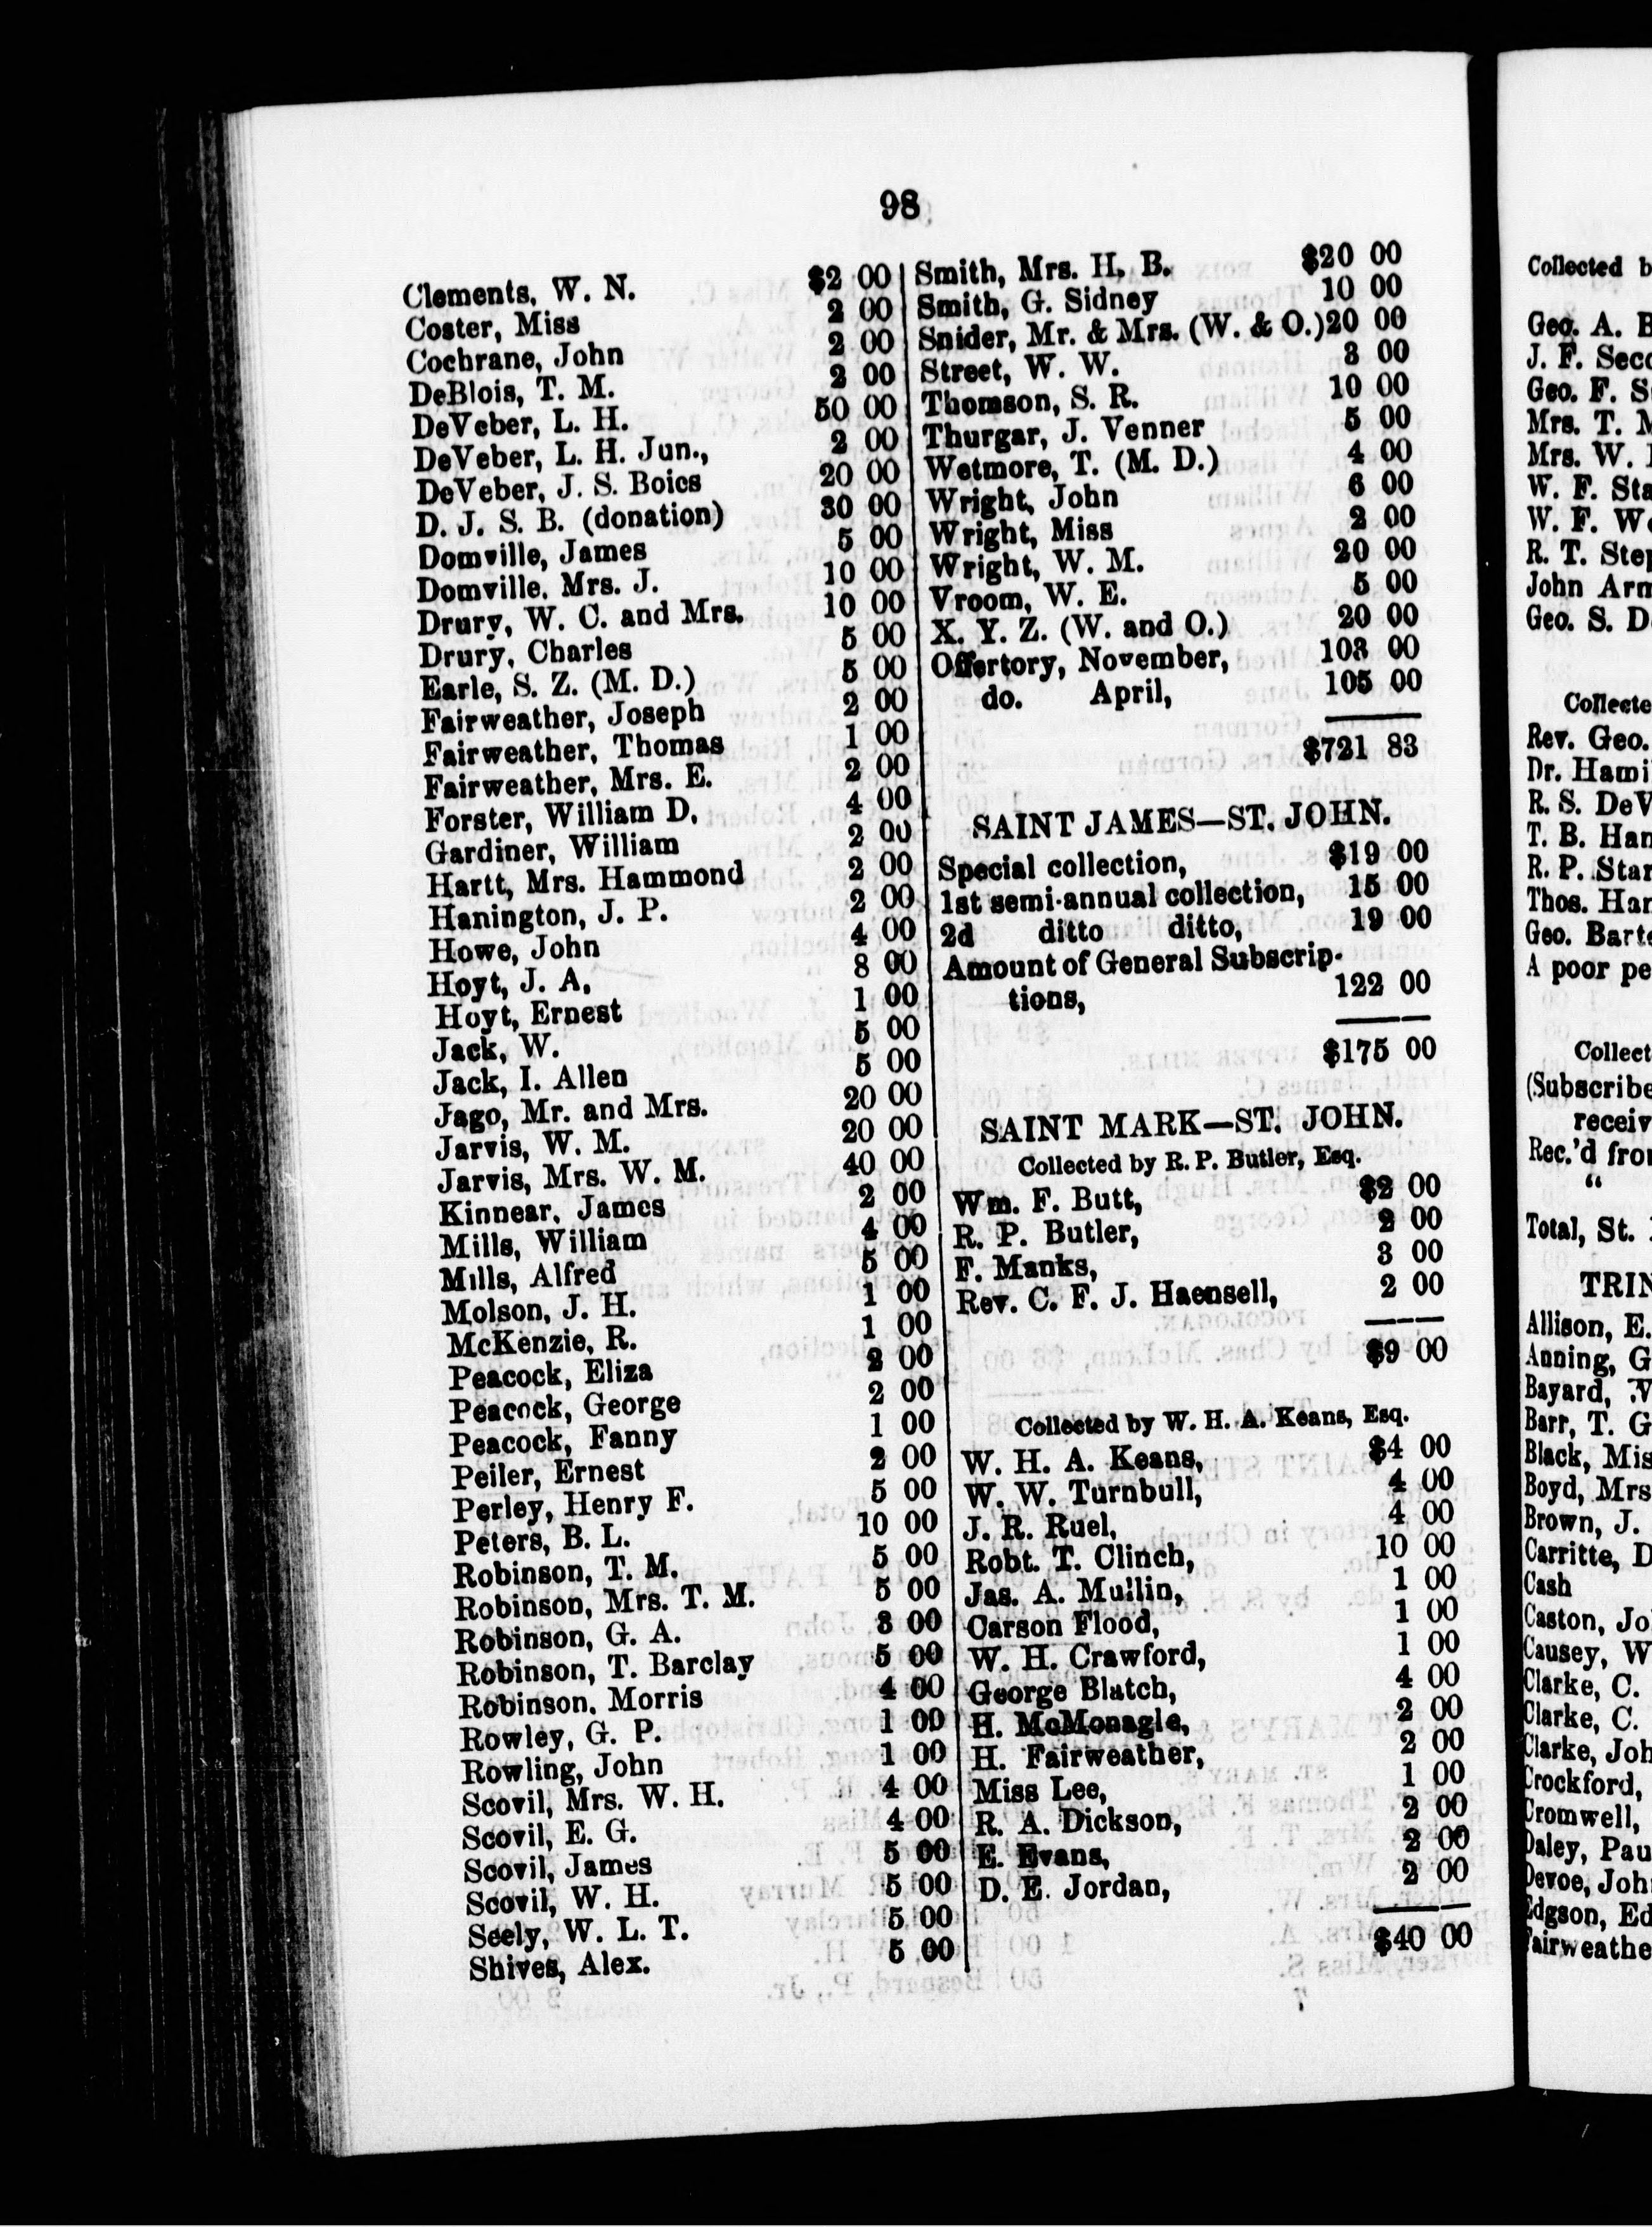 98
Clements, W. N. $2 00
Coster, Miss 2 00
Cochrane, John 2 00
DeBlois, T. M. 2 00
DeVeber, L. H. 50 00
DeVeber, L. H. Jun., 2 00
DeVeber, J. S. Boies 20 00
D. J. S. B. (donation) 30 00
Domville, James 5 00
Domville, Mrs. J. 10 00
Drury, W. C. and Mrs. 10 00
Drury, Charles 5 00
Earle, S. Z. (M. D.) 5 00
Fairweather, Joseph 2 00
Fairweather, Thomas 1 00
Fairweather, Mrs. E. 2 00
Forster, William D. 4 00
Gardiner, William 2 00
Hartt, Mrs. Hammond 2 00
Hanington, J. P. 2 00
Howe, John 4 00
Hoyt, J. A. 8 00
Hoyt, Ernest 1 00
Jack, W. 5 00
Jack, I. Allen 5 00
Jago, Mr. and Mrs. 20 00
Jarvis, W. M. 20 00
Jarvis, Mrs. W. M. 40 00
Kinnear, James 2 00
Mills, William 4 00
Mills, Alfred 5 00
Molson, J. H. 1 00
McKenzie, R. 1 00
Peacock, Eliza 2 00
Peacock, George 2 00
Peacock, Fanny 1 00
Peiler, Ernest 2 00
Perley, Henry F. 5 00
Peters, B. L. 10 00
Robinson, T. M. 5 00
Robinson, Mrs. T. M. 5 00
Robinson, G. A. 3 00
Robinson, T. Barclay 5 00
Robinson, Morris 4 00
Rowley, G. P. 1 00
Rowling, John 1 00
Scovil, Mrs. W. H. 4 00
Scovil, E. G. 4 00
Scovil, James 5 00
Scovil, W. H. 5 00
Seely, W. L. T. 5 00
Shives, Alex. 5 00
Smith, Mrs. H. B. $20 00
Smith, G. Sidney 10 00
Snider, Mr. & Mrs. (W. & O.) 20 00
Street, W. W. 3 00
Thomson, S. R. 10 00
Thurgar, J. Venner 5 00
Wetmore, T. (M. D.) 4 00
Wright, John 6 00
Wright, Miss 2 00
Wright, W. M. 20 00
Vroom, W. E. 5 00
X. Y. Z. (W. and O.) 20 00
Offertory, November, 103 00
do. April, 105 00
$721 83
SAINT JAMES—ST. JOHN.
Special collection, $19 00
1st semi-annual collection, 15 00
2d ditto ditto, 19 00
Amount of General Subscrip-
tions, 122 00
$175 00
SAINT MARK—ST. JOHN.
Collected by R. P. Butler, Esq.
Wm. F. Butt, $2 00
R. P. Butler, 2 00
F. Manks, 3 00
Rev. C. F. J. Haensell, 2 00
$9 00
Collected by W. H. A. Keans, Esq.
W. H. A. Keans, $4 00
W. W. Turnbull, 4 00
J. R. Ruel, 4 00
Robt. T. Clinch, 10 00
Jas. A. Mullin, 1 00
Carson Flood, 1 00
W. H. Crawford, 1 00
George Blatch, 4 00
H. McMonagle, 2 00
H. Fairweather, 2 00
Miss Lee, 1 00
R. A. Dickson, 2 00
E. Evans, 2 00
D. E. Jordan, 2 00
$40 00
7
Collected
Geo. A.
J. F.
Geo. F.
Mrs. T.
Mrs. W.
W. F.
W. F.
R. T.
John
Geo. S.
Rev. Geo.
Dr.
R. S.
T. B.
R. P.
Thos.
Geo.
A poor
Rec.'d
"
Total, St.
Allison, E.
Anning,
Bayard,
Barr, T.
Black,
Boyd,
Brown, J.
Carritte,
Cash
Caston,
Causey,
Clarke, C.
Clarke, C.
Clarke,
Crockford,
Cromwell,
Daley,
Devoe,